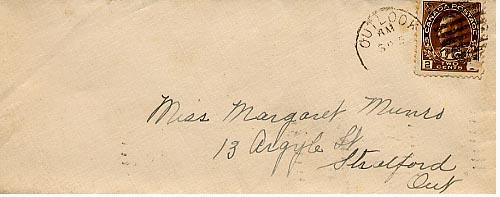 OUTLOOK
AM
CANADA POSTAGE
2 TWO 2
CENTS
Miss Margaret Munro
13 Argyle St
Stratford
Ont